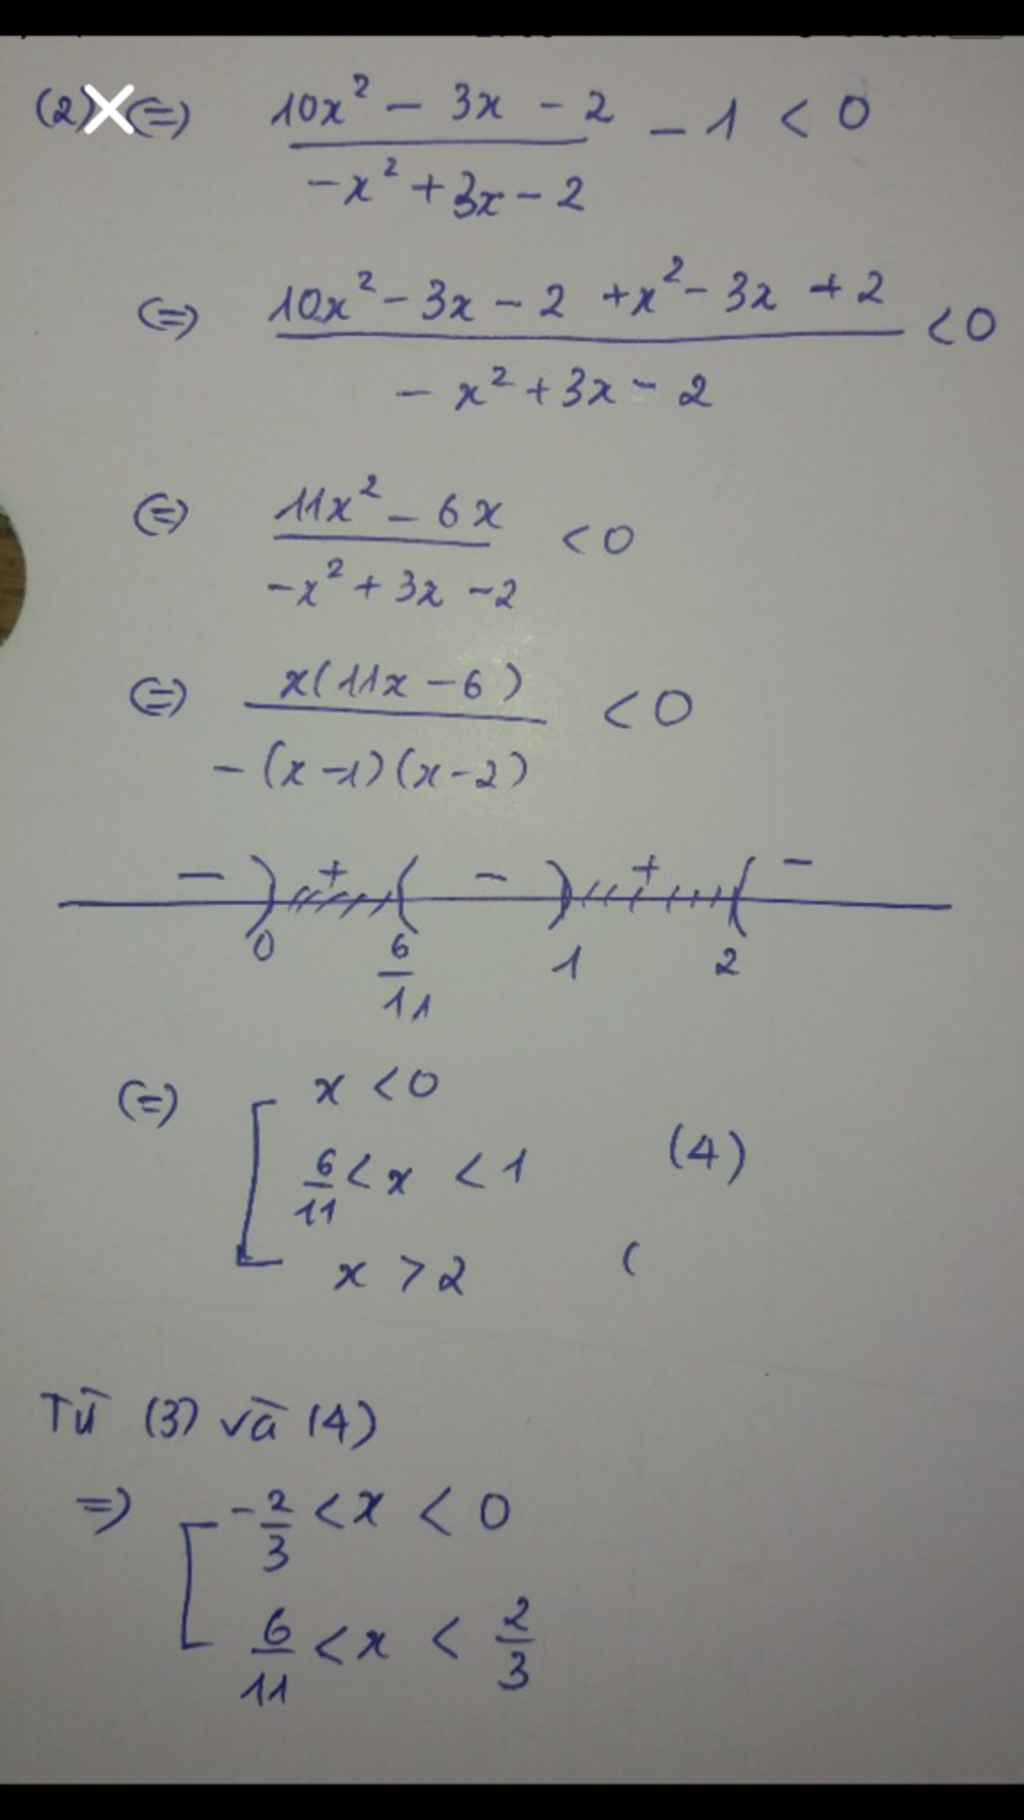 (2) (=) (10x² - 3x - 2)/(-x² + 3x - 2) - 1 < 0
(=) (10x² - 3x - 2 + x² - 3x + 2)/(-x² + 3x - 2) < 0
(=) (11x² - 6x)/(-x² + 3x - 2) < 0
(=) x(11x - 6)/(-(x - 1)(x - 2)) < 0
- ) + ( - ) + ( -
0 6/11 1 2
(=) [ x < 0
6/11 < x < 1 (4)
x > 2 (
Từ (3) và (4)
=) [ -2/3 < x < 0
6/11 < x < 2/3